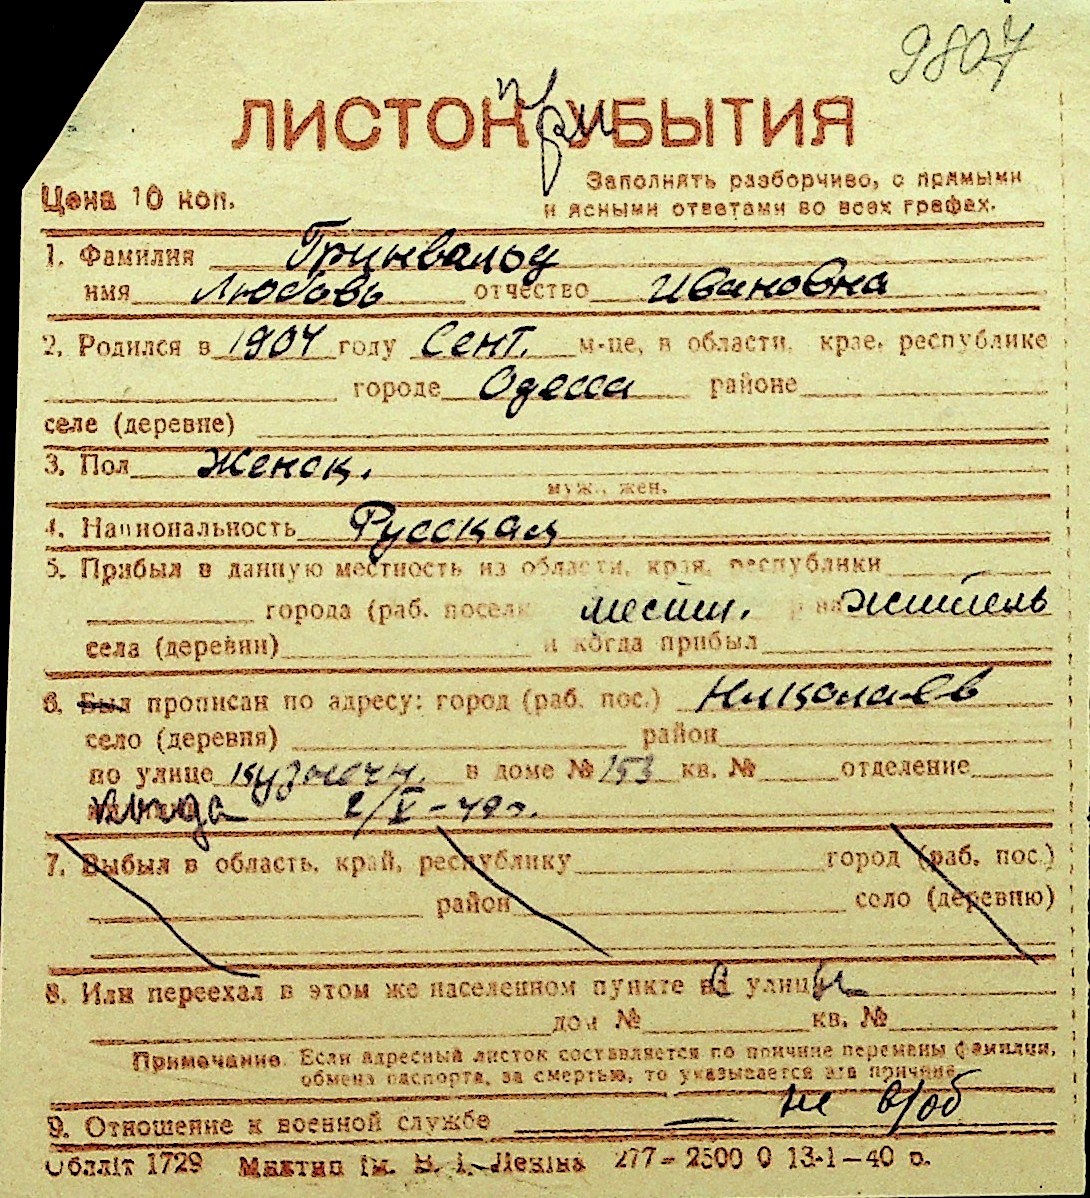 9807
ЛИСТОК ПРИБЫТИЯ
Цена 10 коп.
Заполнять разборчиво, с прямыми
и ясными ответами во всех графах.
1. Фамилия Гринвальд
имя Любовь отчество Ивановна
2. Родился в 1904 году Сент. м-це, в области, крае, республике
городе Одесса районе
селе (деревне)
3. Пол Женск.
муж., жен.
4. Национальность Русская
5. Прибыл в данную местность из области, края, республики
города (раб. поселк местн. житель
села (деревни) и когда прибыл
6. Был прописан по адресу: город (раб. пос.) Николаев
село (деревня) район
по улице Кузнечн. в доме № 153 кв. № отделение
когда 2/X-40г.
7. Выбыл в область, край, республику город (раб. пос.)
район село (деревню)
8. Или переехал в этом же населенном пункте с улицы
дом № кв. №
Примечание. Если адресный листок составляется по причине перемены фамилии,
обмена паспорта, за смертью, то указывается эта причина
9. Отношение к военной службе — не в/об
Облліт 1729 Миктип ім. В. І. Леніна 277-2500 0 13-1-40 р.